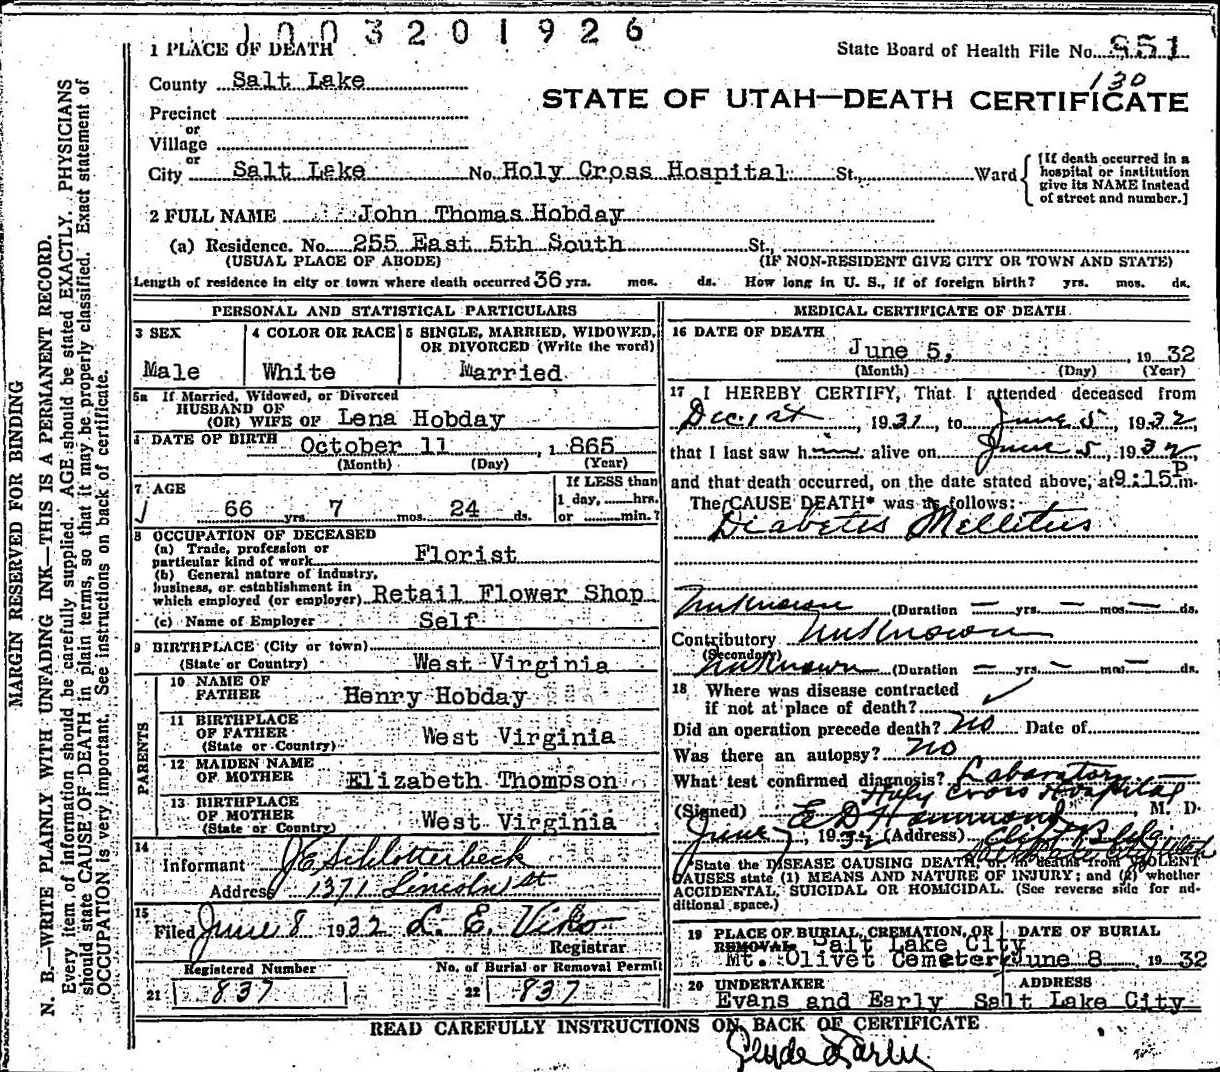 1003201926
1 PLACE OF DEATH
State Board of Health File No. 851
130
County Salt Lake
STATE OF UTAH—DEATH CERTIFICATE
Precinct
or
Village
or
City Salt Lake No. Holy Cross Hospital St., Ward
[If death occurred in a hospital or institution give its NAME instead of street and number.]
2 FULL NAME John Thomas Hobday
(a) Residence. No. 255 East 5th South St.,
(USUAL PLACE OF ABODE) (IF NON-RESIDENT GIVE CITY OR TOWN AND STATE)
Length of residence in city or town where death occurred 36 yrs. mos. ds. How long in U. S., if of foreign birth? yrs. mos. ds.
PERSONAL AND STATISTICAL PARTICULARS
3 SEX
Male
4 COLOR OR RACE
White
5 SINGLE, MARRIED, WIDOWED, OR DIVORCED (Write the word)
Married
5a If Married, Widowed, or Divorced
HUSBAND OF
(OR) WIFE OF Lena Hobday
6 DATE OF BIRTH October 11, 1865
(Month) (Day) (Year)
7 AGE
66 yrs. 7 mos. 24 ds.
If LESS than
1 day, hrs.
or min.?
8 OCCUPATION OF DECEASED
(a) Trade, profession or
particular kind of work Florist
(b) General nature of industry,
business, or establishment in
which employed (or employer) Retail Flower Shop
(c) Name of Employer Self
9 BIRTHPLACE (City or town)
(State or Country) West Virginia
PARENTS
10 NAME OF
FATHER Henry Hobday
11 BIRTHPLACE
OF FATHER West Virginia
(State or Country)
12 MAIDEN NAME
OF MOTHER Elizabeth Thompson
13 BIRTHPLACE
OF MOTHER West Virginia
(State or Country)
14
Informant J E Schlotterbeck
Address 1371 Lincoln st
15
Filed June 8 1932 L. E. Viko
Registrar
Registered Number
21 837
No. of Burial or Removal Permit
22 837
MEDICAL CERTIFICATE OF DEATH
16 DATE OF DEATH
June 5, 1932
(Month) (Day) (Year)
17 I HEREBY CERTIFY, That I attended deceased from
Dec 1st, 1931, to June 5, 1932,
that I last saw him alive on June 5, 1932,
and that death occurred, on the date stated above, at 9:15 P m.
The CAUSE DEATH* was as follows:
Diabetes Mellitus
Unknown (Duration — yrs. — mos. — ds.
Contributory Unknown
(Secondary)
Unknown (Duration — yrs. — mos. — ds.
18 Where was disease contracted
if not at place of death?
Did an operation precede death? No Date of
Was there an autopsy? No
What test confirmed diagnosis? Laboratory
Holy Cross Hospital
(Signed) E D Hammond, M. D.
June 7, 1932 (Address) Clift Bldg
*State the DISEASE CAUSING DEATH, or in deaths from VIOLENT
CAUSES state (1) MEANS AND NATURE OF INJURY; and (2) whether
ACCIDENTAL, SUICIDAL OR HOMICIDAL. (See reverse side for ad-
ditional space.)
19 PLACE OF BURIAL, CREMATION, OR
REMOVAL Salt Lake City
Mt. Olivet Cemetery
DATE OF BURIAL
June 8 1932
20 UNDERTAKER ADDRESS
Evans and Early Salt Lake City
READ CAREFULLY INSTRUCTIONS ON BACK OF CERTIFICATE
MARGIN RESERVED FOR BINDING
N. B.—WRITE PLAINLY WITH UNFADING INK—THIS IS A PERMANENT RECORD.
Every item of information should be carefully supplied. AGE should be stated EXACTLY. PHYSICIANS
should state CAUSE OF DEATH in plain terms, so that it may be properly classified. Exact statement of
OCCUPATION is very important. See instructions on back of certificate.